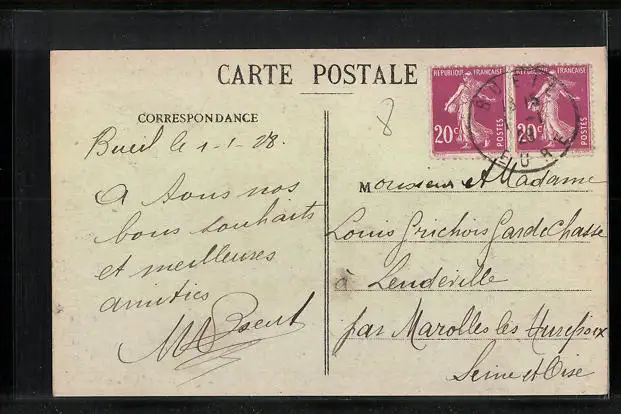 CARTE POSTALE
CORRESPONDANCE
8
RÉPUBLIQUE FRANÇAISE
20c
POSTES
RÉPUBLIQUE FRANÇAISE
20c
POSTES
BUEIL
EURE
Bueil le 1-1-28.
A Tous nos
bons souhaits
et meilleures
amitiés
Monsieur et Madame
Louis Grichois Garde Chasse
à Leudeville
par Marolles les Hurepoix
Seine et Oise